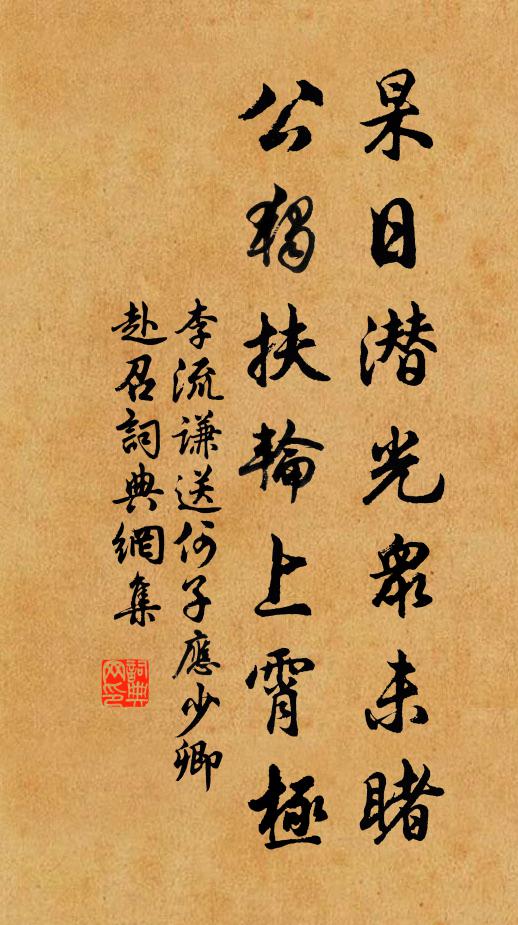 杲日潜光衆未睹
公獨扶輪上霄極
李流謙送何子應少卿
赴召詞典網集
詞典网印